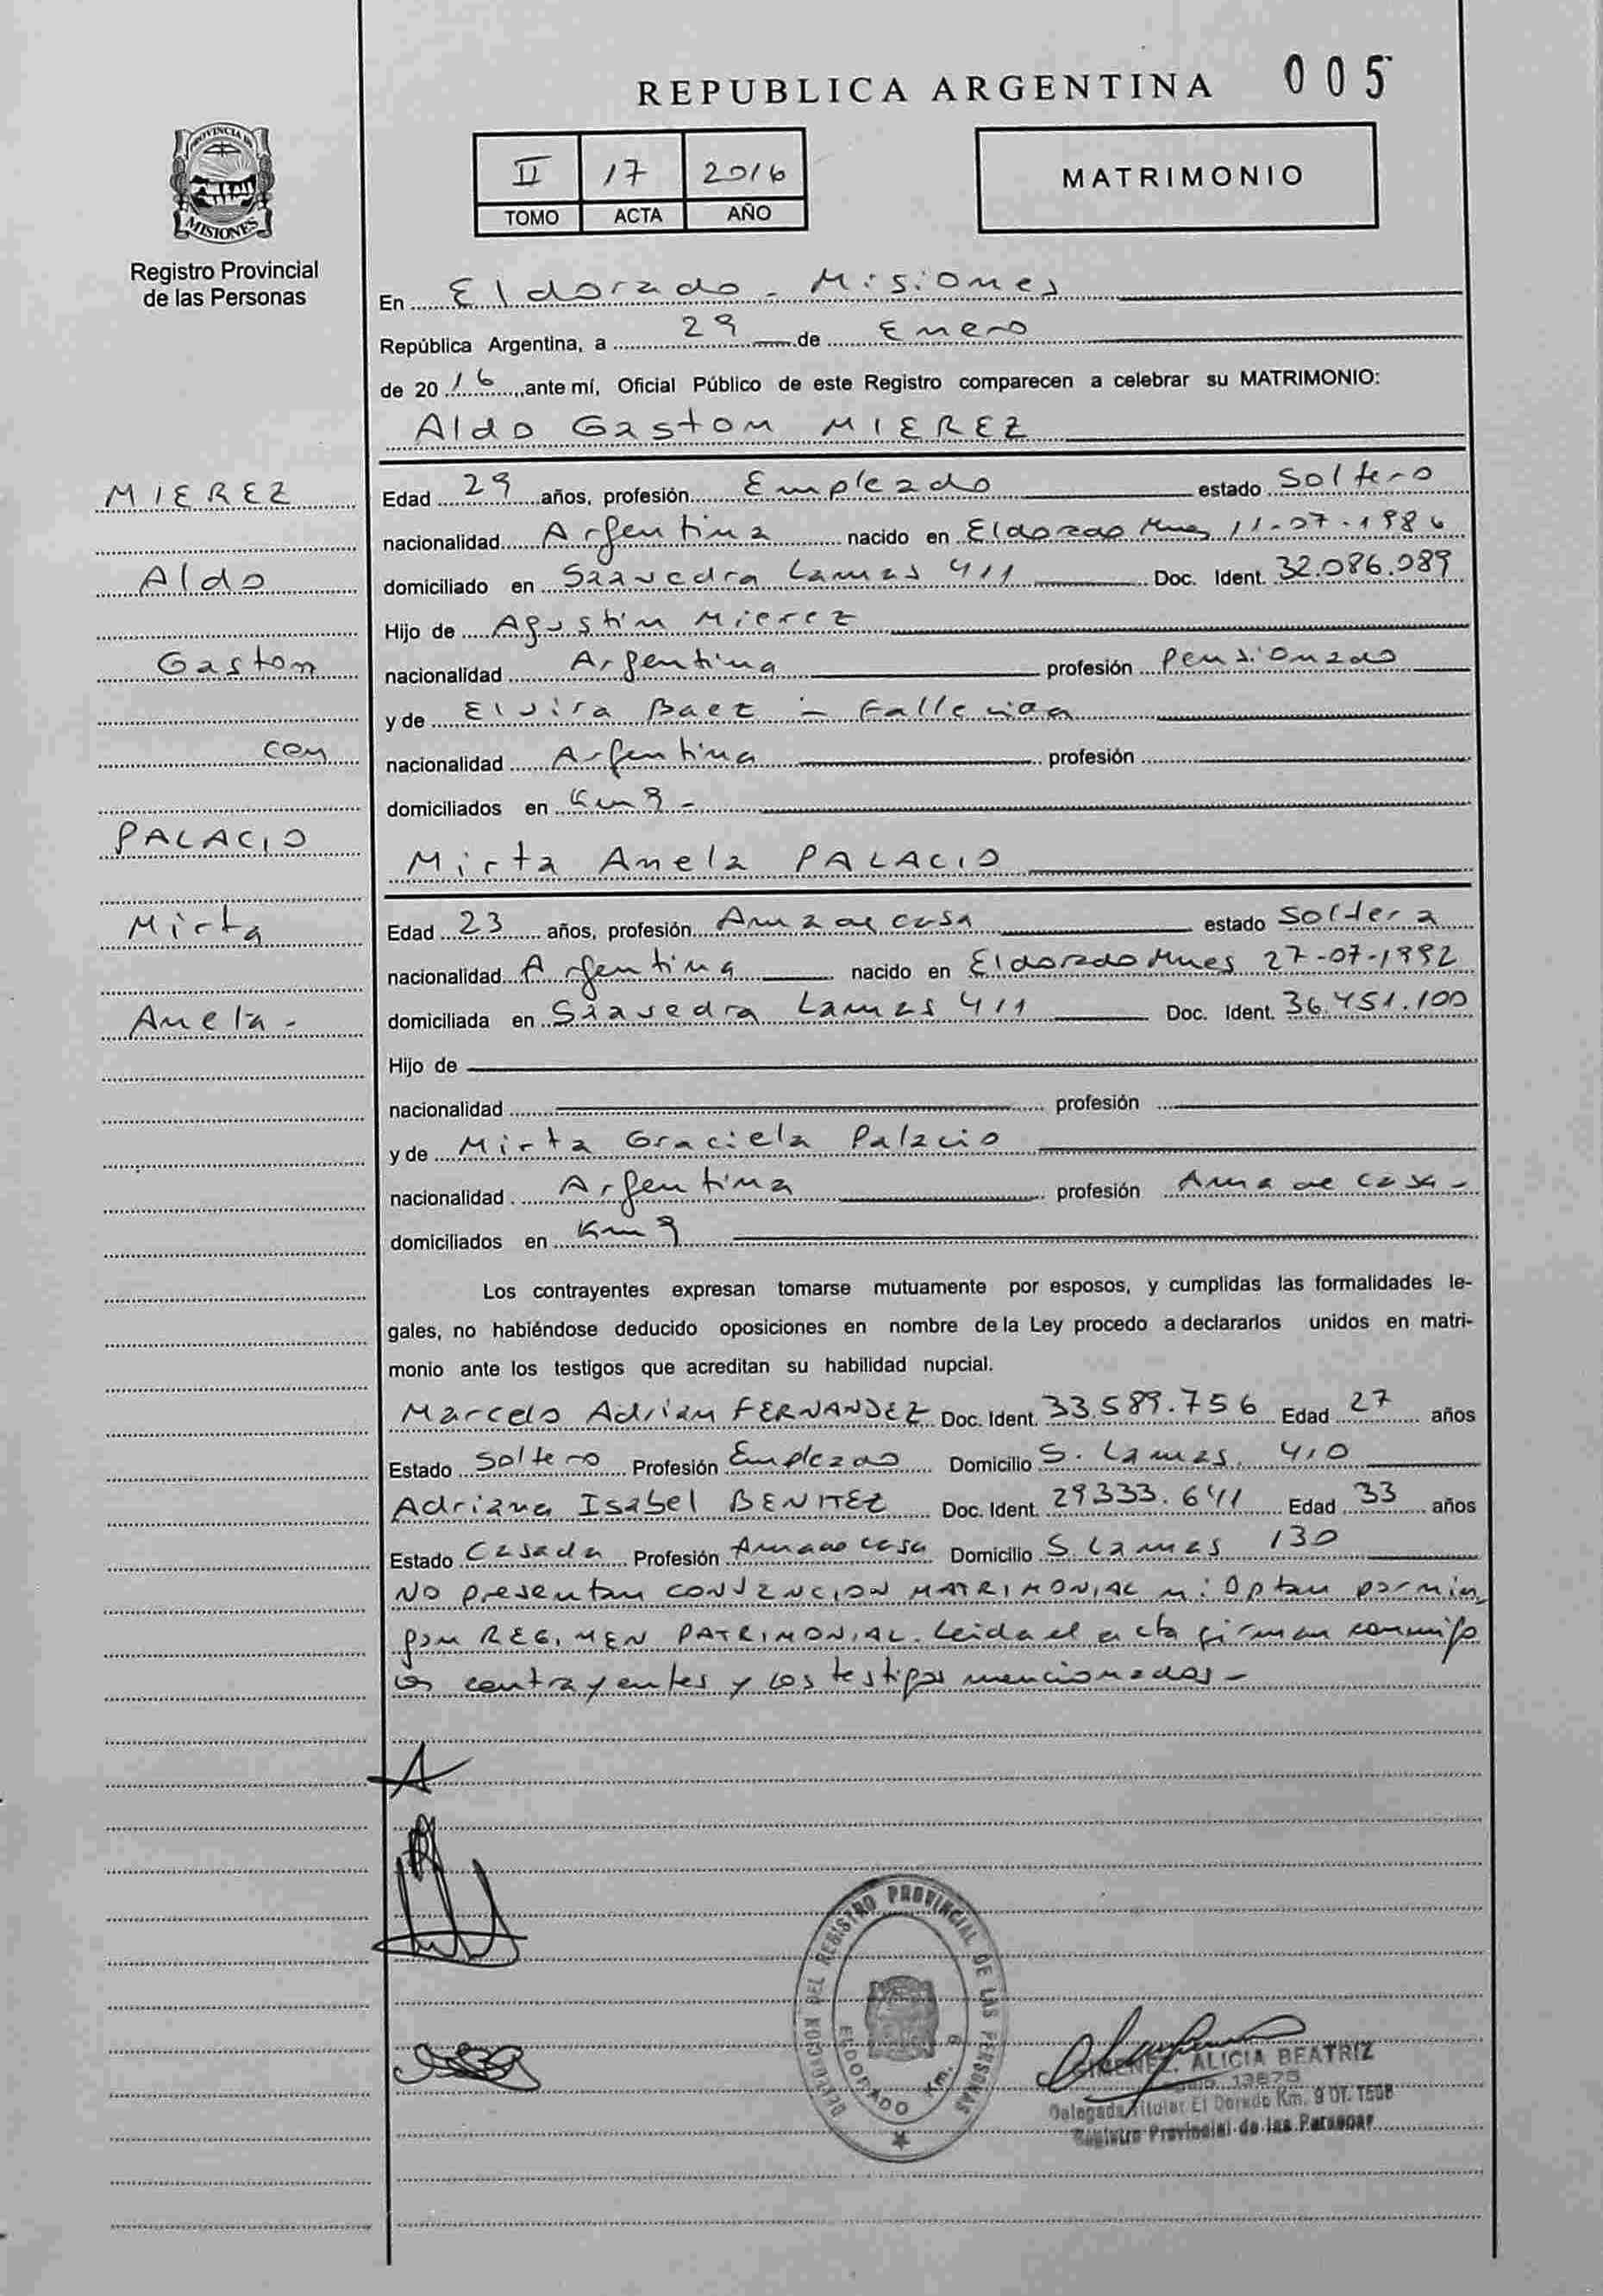 REPUBLICA ARGENTINA 005
PROVINCIA DE
MISIONES
Registro Provincial
de las Personas
II 17 2016
TOMO ACTA AÑO
MATRIMONIO
En Eldorado - Misiones
República Argentina, a 29 de Enero
de 2016, ante mí, Oficial Público de este Registro comparecen a celebrar su MATRIMONIO:
Aldo Gaston MIEREZ
MIEREZ
Aldo
Gaston
con
PALACIO
Mirta
Anela -
Edad 29 años, profesión Empleado estado Soltero
nacionalidad Argentina nacido en Eldorado Mnes 11-07-1986
domiciliado en Saavedra Lamas 411 Doc. Ident. 32.086.089
Hijo de Agustin Mierez
nacionalidad Argentina profesión Pensionado
y de Elvira Baez - Fallecida
nacionalidad Argentina profesión
domiciliados en Km 9 -
Mirta Anela PALACIO
Edad 23 años, profesión Ama de casa estado Soltera
nacionalidad Argentina nacido en Eldorado Mnes 27-07-1992
domiciliada en Saavedra Lamas 411 Doc. Ident. 36.451.100
Hijo de
nacionalidad profesión
y de Mirta Graciela Palacio
nacionalidad Argentina profesión Ama de casa -
domiciliados en Km 9
Los contrayentes expresan tomarse mutuamente por esposos, y cumplidas las formalidades le-
gales, no habiéndose deducido oposiciones en nombre de la Ley procedo a declararlos unidos en matri-
monio ante los testigos que acreditan su habilidad nupcial.
Marcelo Adrian FERNANDEZ Doc. Ident. 33.589.756 Edad 27 años
Estado Soltero Profesión Empleado Domicilio S. Lamas 410
Adriana Isabel BENITEZ Doc. Ident. 29.333.641 Edad 33 años
Estado Casada Profesión Ama de casa Domicilio S. Lamas 130
No presentan CONVENCION MATRIMONIAL ni optan por nin
gun REGIMEN PATRIMONIAL. Leida el acta firman conmigo
los contrayentes y los testigos mencionados -
DELEGACION DEL REGISTRO PROVINCIAL DE LAS PERSONAS
ELDORADO Km. 9
GIMENEZ, ALICIA BEATRIZ
13875
Delegada Titular El Dorado Km. 9 OT. 1508
Registro Provincial de las Personas